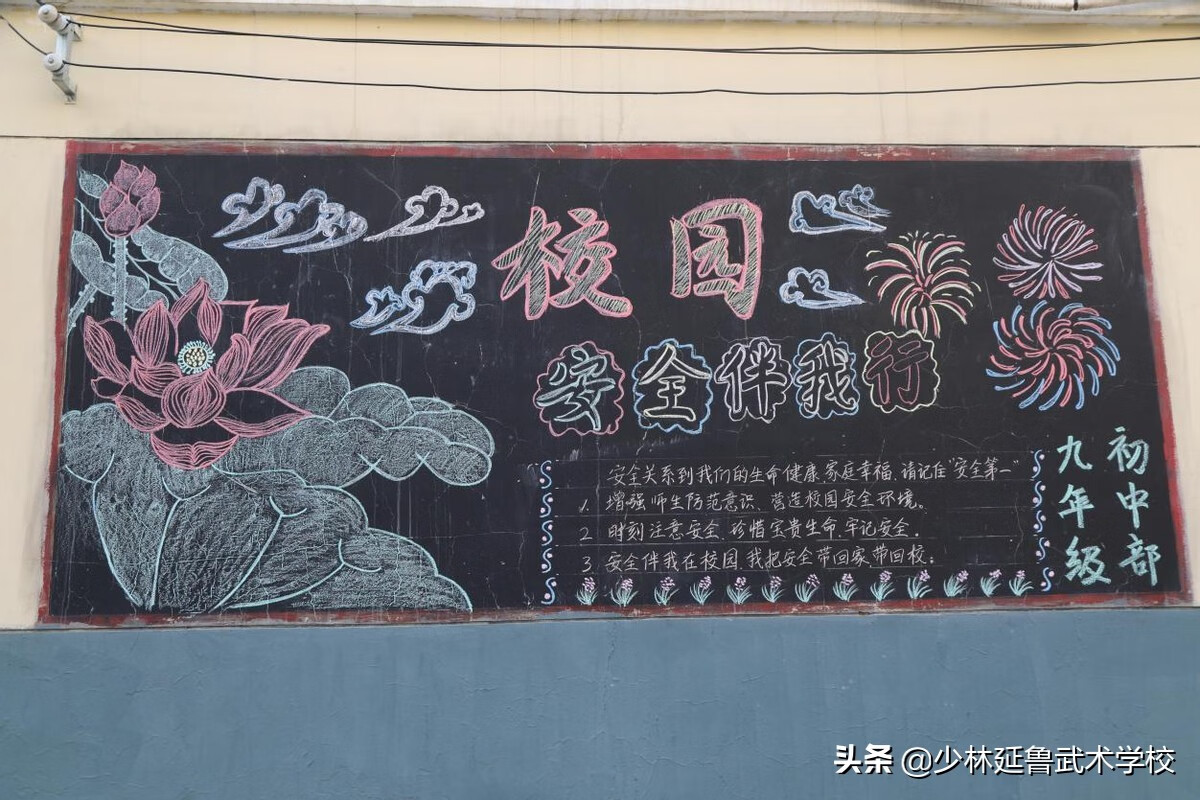 校园
安全伴我行
安全关系到我们的生命健康、家庭幸福、请记住"安全第一"
1. 增强师生防范意识、营造校园安全环境。
2 时刻注意安全、珍惜宝贵生命、牢记安全。
3 安全伴我在校园、我把安全带回家、带回校。
初中部
九年级
头条 @少林延鲁武术学校